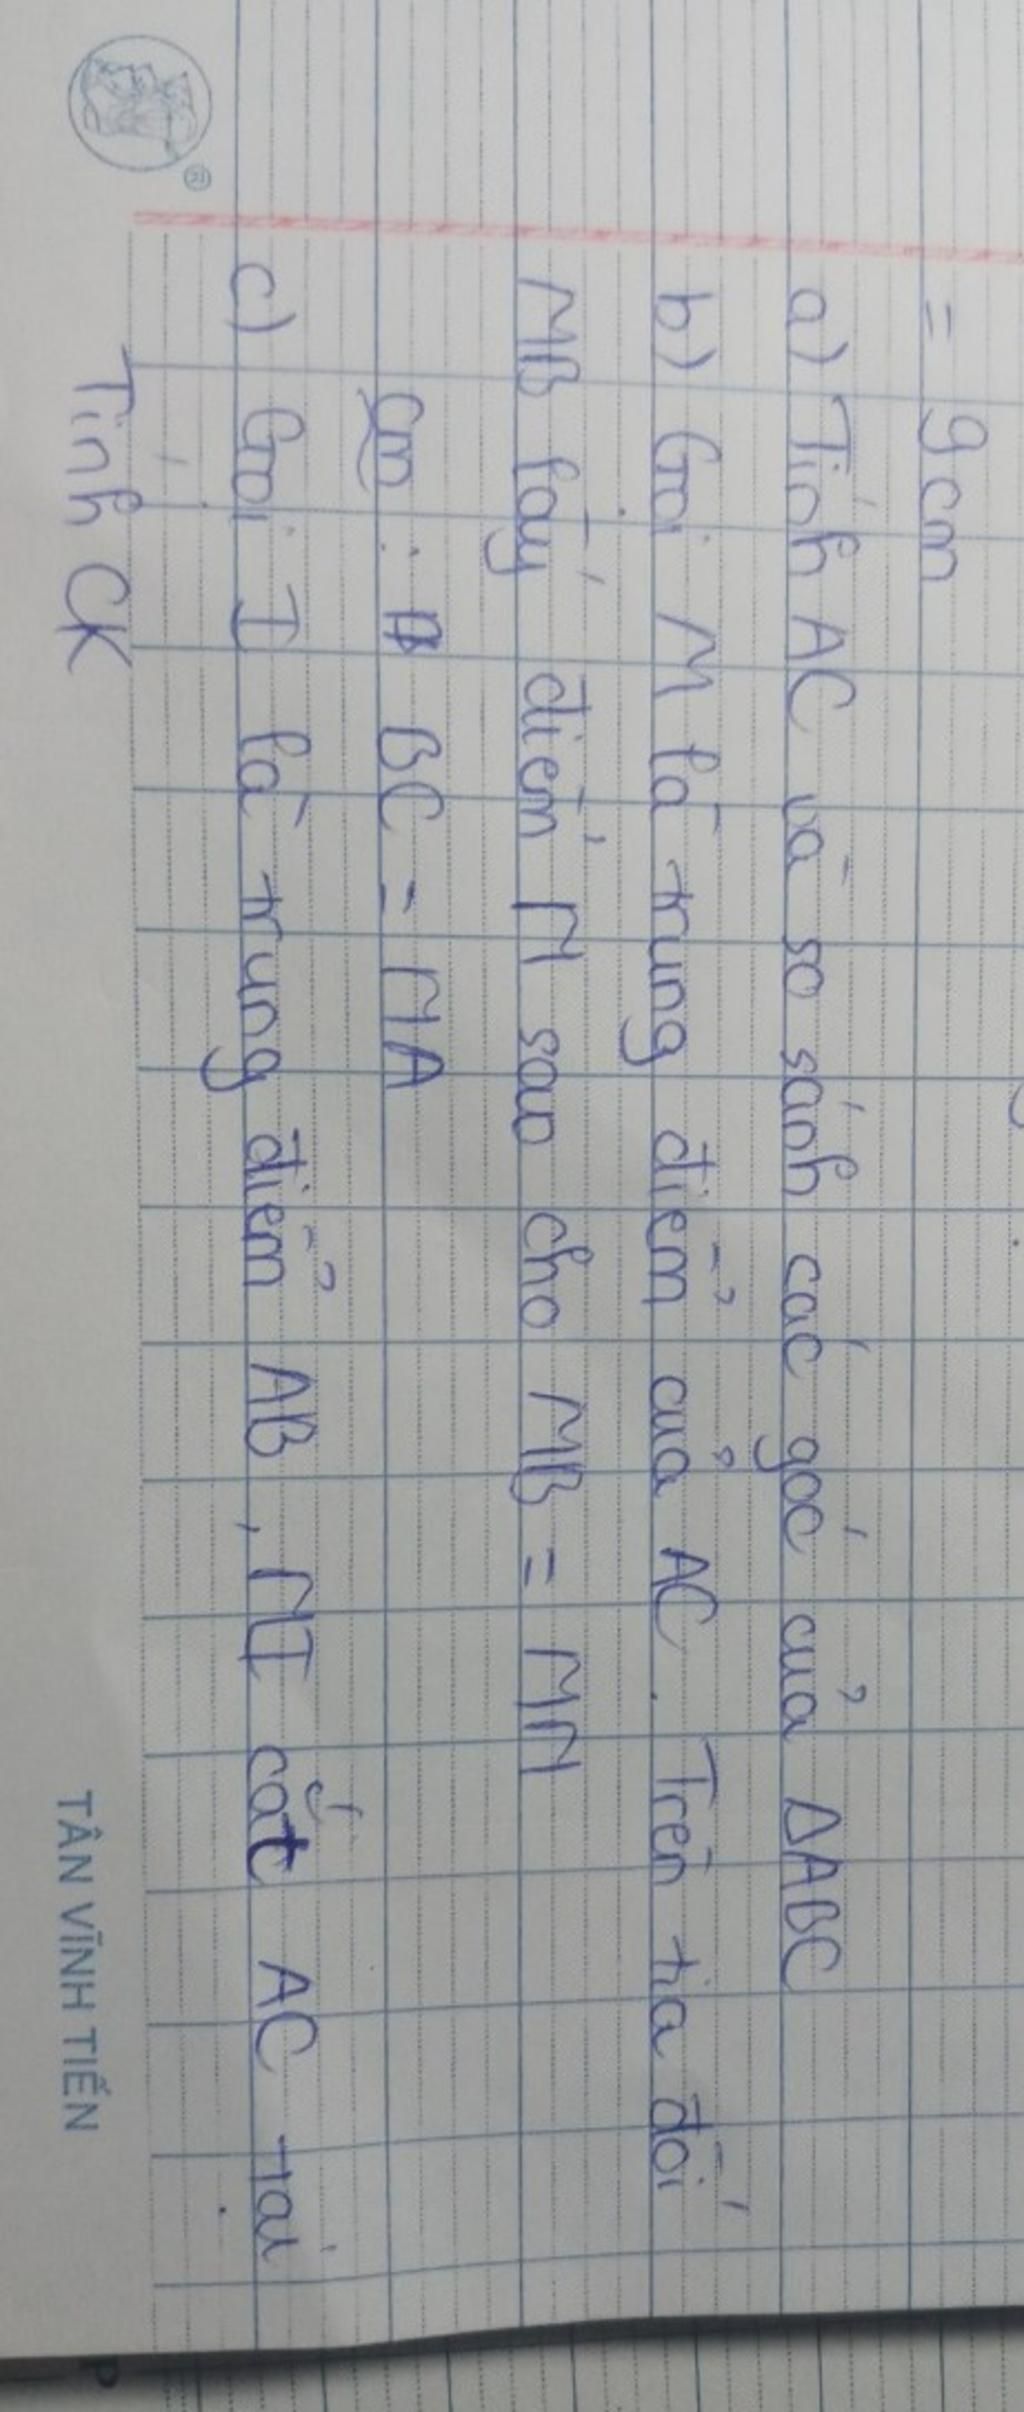 = 9cm
a) Tính AC và so sánh các góc của ΔABC
b) Gọi M là trung điểm của AC. Trên tia đối
MB lấy điểm N sao cho MB = MN
Cm : BC = NA
c) Gọi I là trung điểm AB, NI cắt AC tại
Tính CK
TÂN VĨNH TIẾN